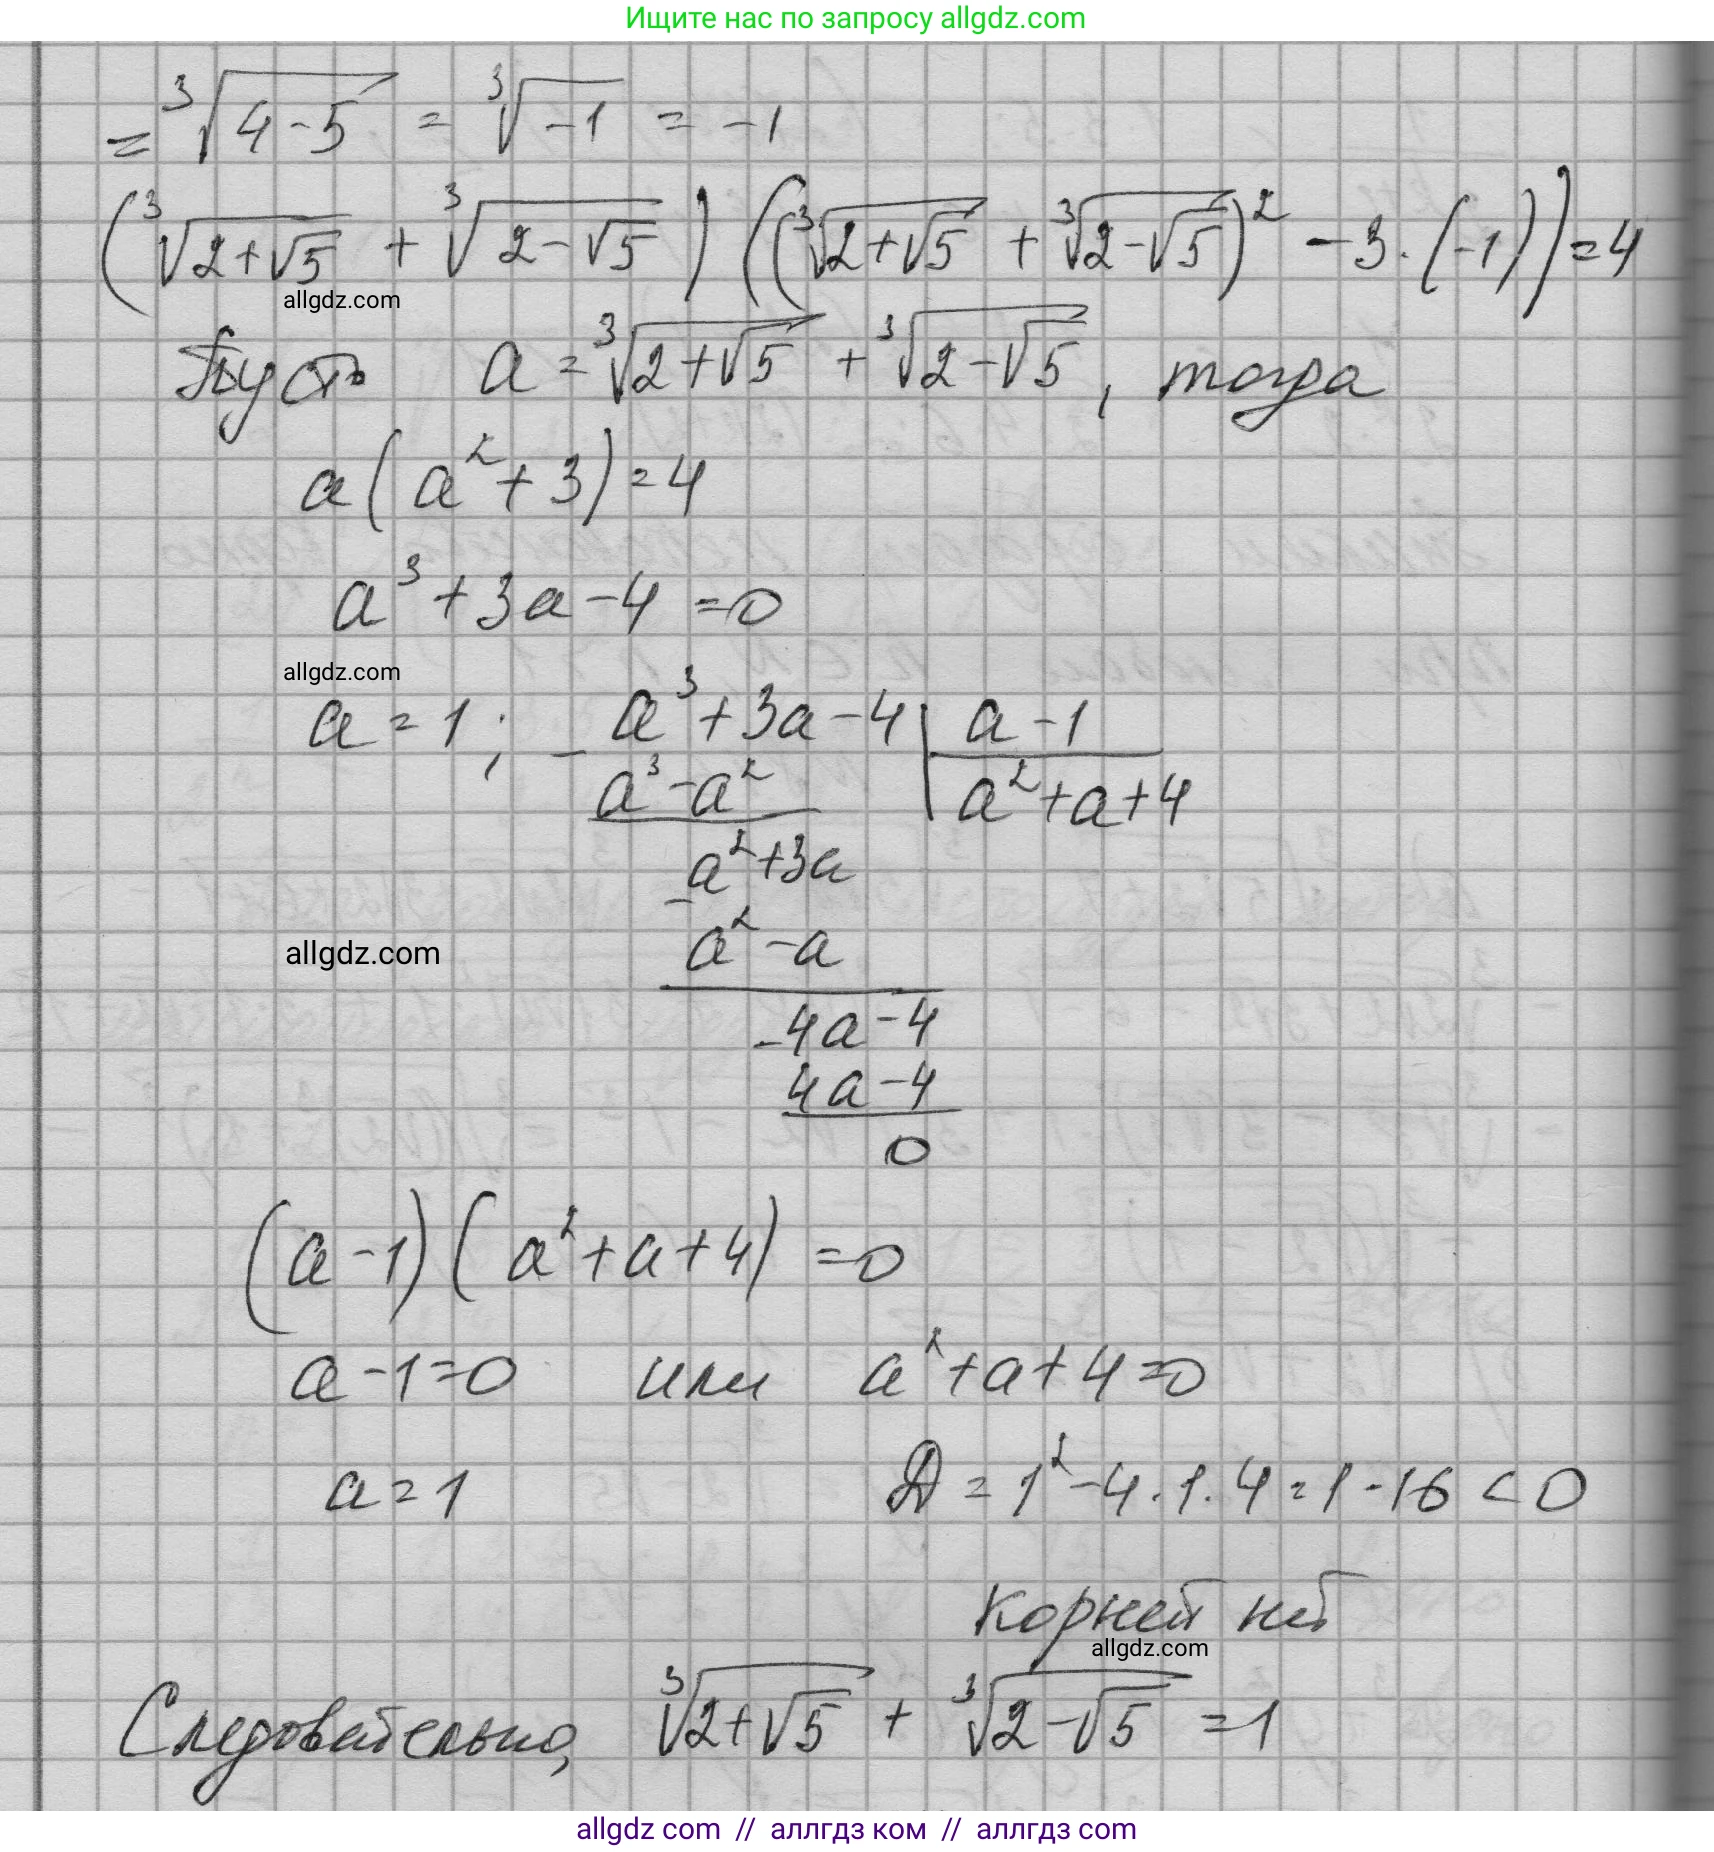 Ищите нас по запросу allgdz.com
= ∛(4-5) = ∛(-1) = -1
(∛(2+√5) + ∛(2-√5)) ((∛(2+√5) + ∛(2-√5))² - 3·(-1)) = 4
allgdz.com
Пусть a = ∛(2+√5) + ∛(2-√5), тогда
a(a²+3) = 4
a³+3a-4 = 0
allgdz.com
a = 1; - a³+3a-4 | a-1
a³-a² | a²+a+4
- a²+3a
a²-a
allgdz.com
- 4a-4
4a-4
0
(a-1)(a²+a+4) = 0
a-1=0 или a²+a+4=0
a=1 D = 1²-4·1·4 = 1-16 < 0
корней нет
allgdz.com
Следовательно, ∛(2+√5) + ∛(2-√5) = 1
allgdz com // аллгдз ком // аллгдз com